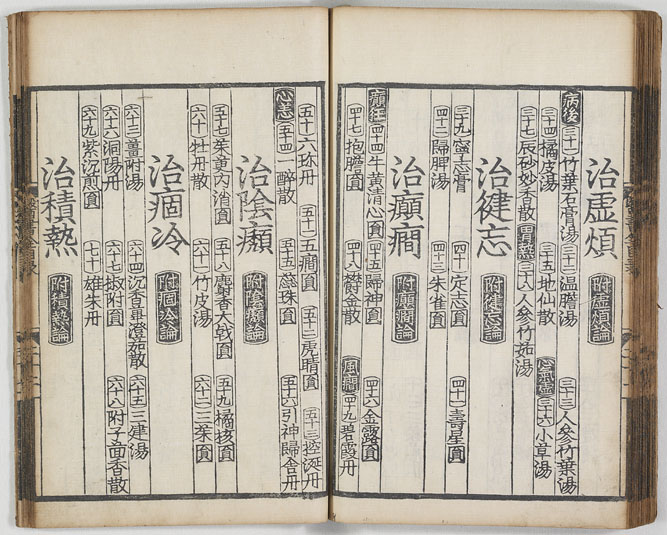 治虛煩 附虛煩論
病後 三十一 竹葉石膏湯 三十二 溫膽湯 三十三 人參竹葉湯
三十四 橘皮湯 三十五 地仙散 心氣虛 三十六 小草湯
三十七 辰砂妙香散 胃熱 三十八 人參竹茹湯
治健忘 附健忘論
三十九 寧志膏 四十 定志圓 四十一 壽星圓
四十二 歸脾湯 四十三 朱雀圓
治癲癇 附癲癇論
癲狂 四十四 牛黃清心圓 四十五 歸神圓 四十六 金露圓
四十七 抱膽圓 四十八 鬱金散 風癇 四十九 碧霞丹
五十 六珎丹 五十一 五癇圓 五十二 虎睛圓 五十三 控涎丹
心恙 五十四 一醉散 五十五 蘂珠圓 五十六 引神歸舍丹
治陰㿗 附陰㿗論
五十七 茱萸內消圓 五十八 麝香大戟圓 五十九 橘核圓
六十 牡丹散 六十一 竹皮湯 六十二 三茱圓
治痼冷 附痼冷論
六十三 薑附湯 六十四 沉香蓽澄茄散 六十五 三建湯
六十六 洞陽丹 六十七 椒附圓 六十八 附子茴香散
六十九 紫沉煎圓 七十 雄朱丹
治積熱 附積熱論